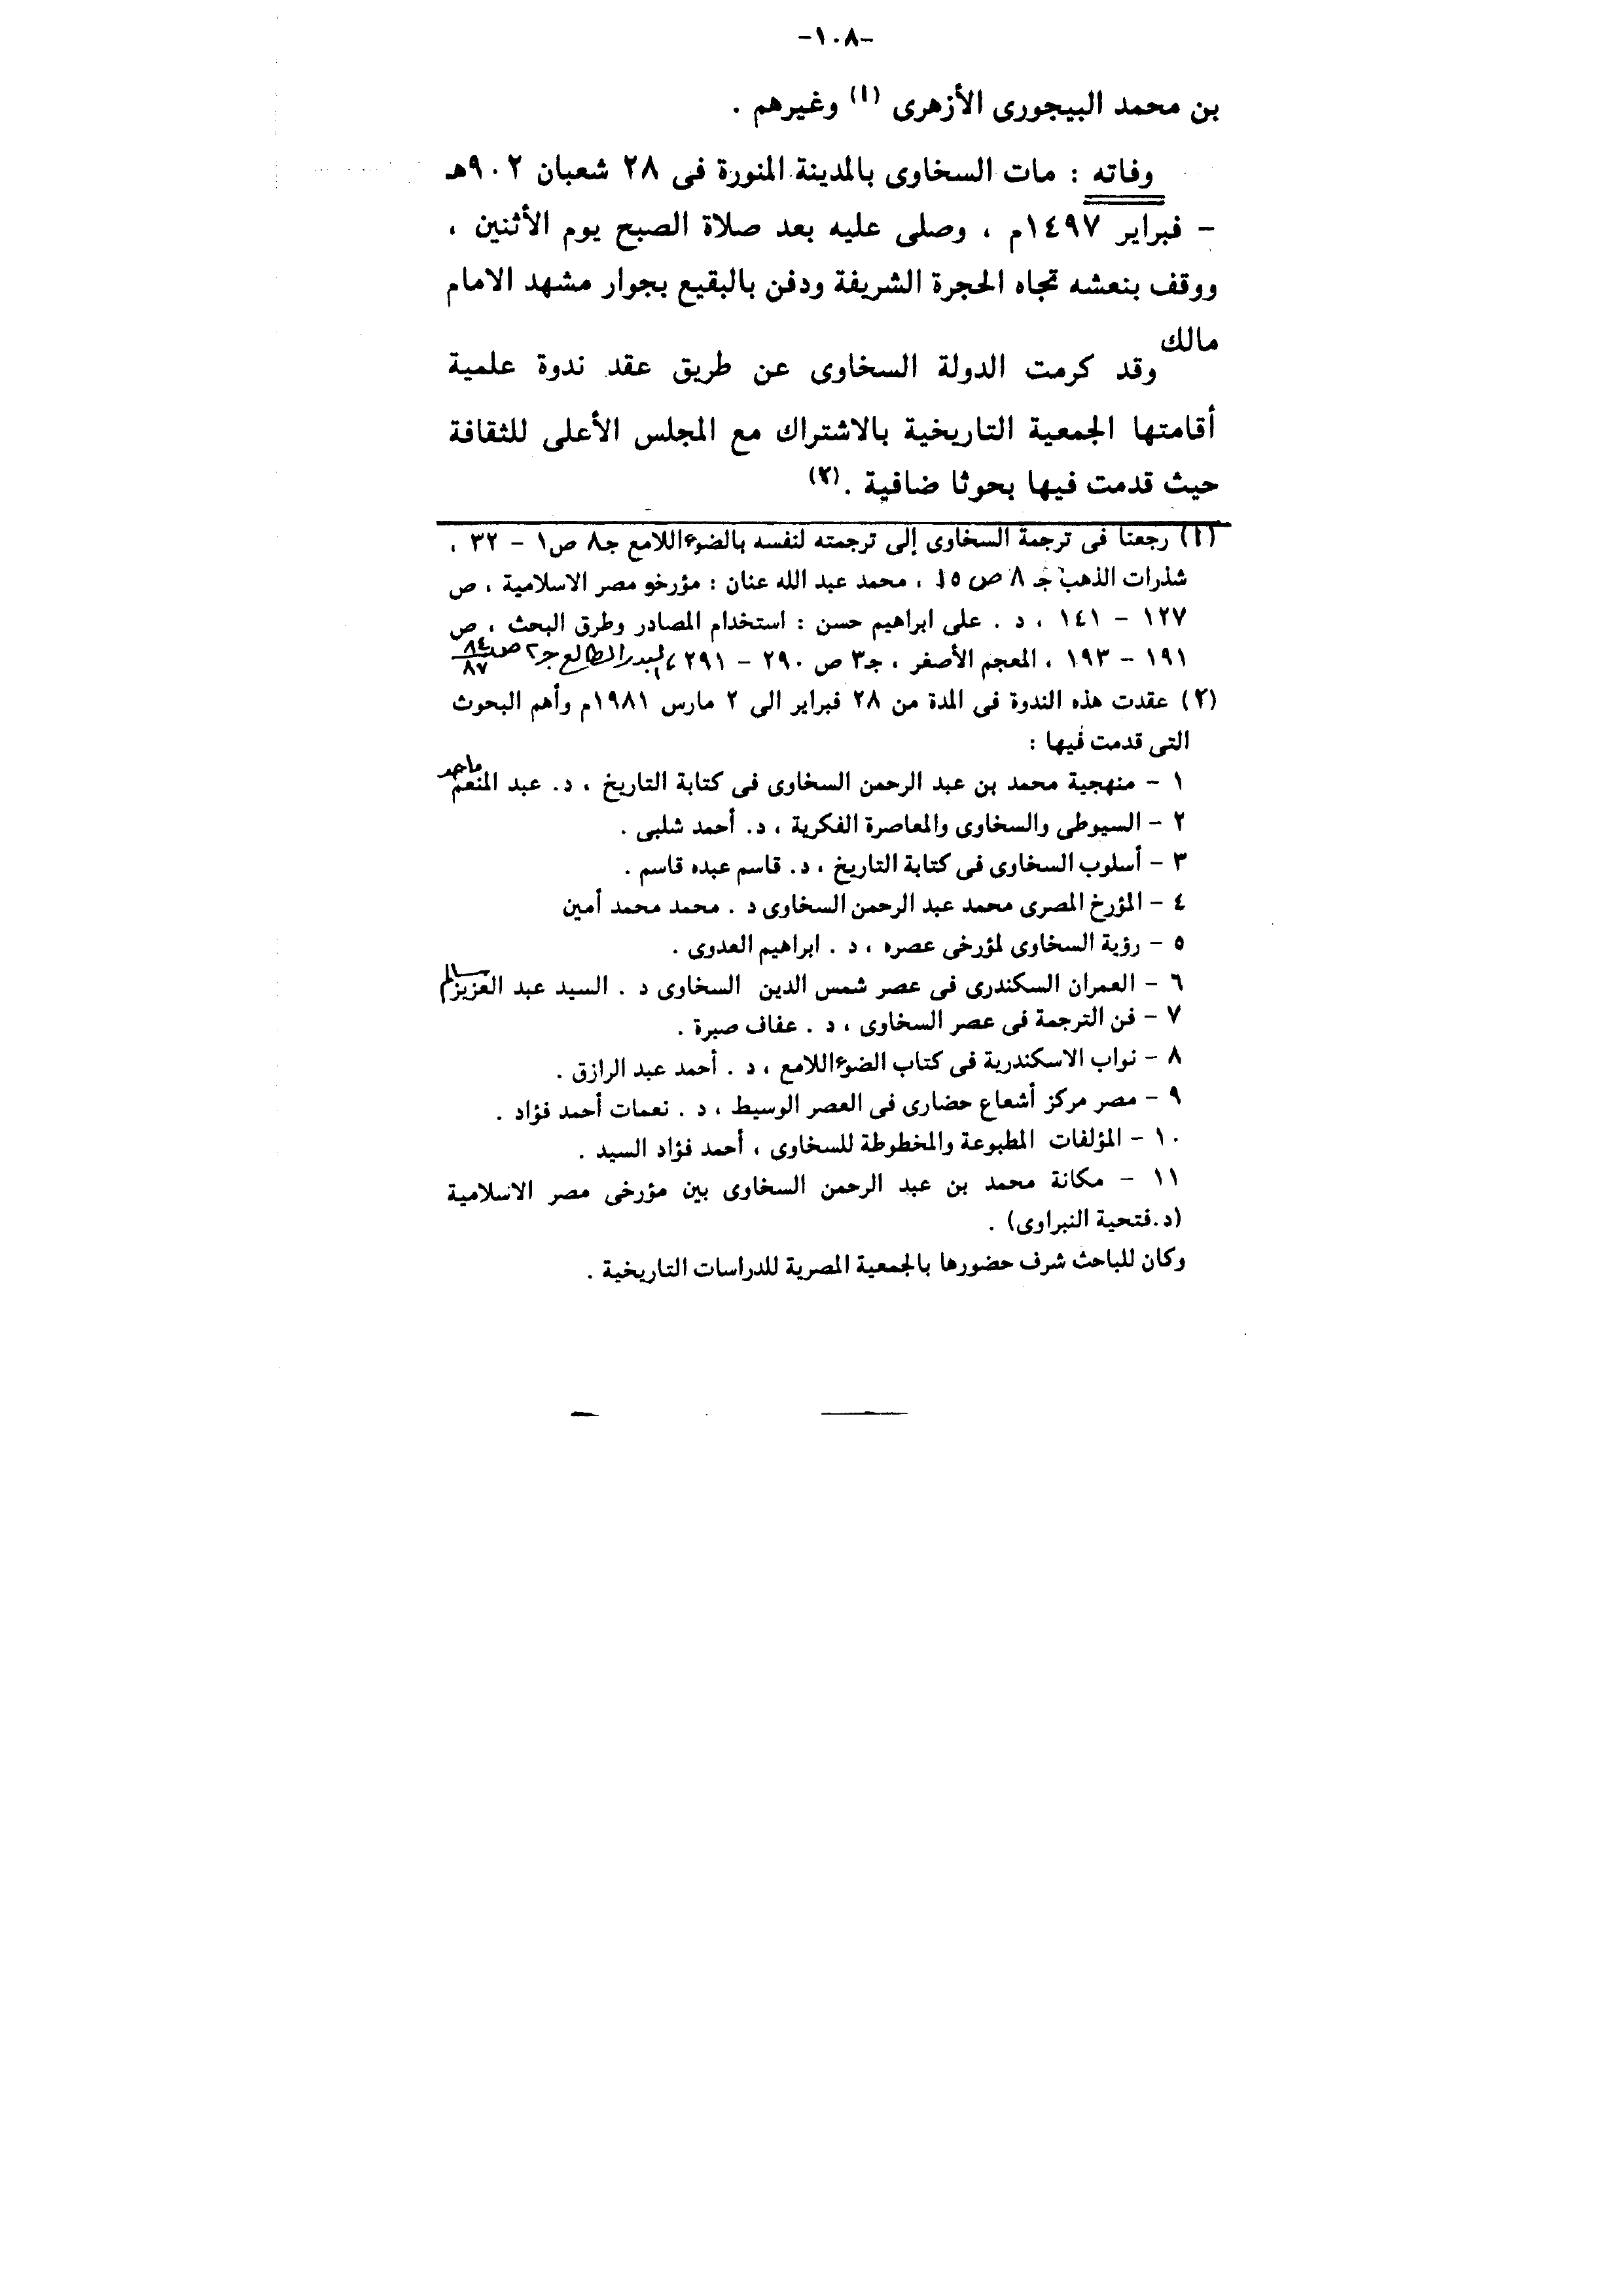 -١٠٨-
بن محمد البيجورى الأزهرى (١) وغيرهم .
وفاته : مات السخاوى بالمدينة المنورة فى ٢٨ شعبان ٩٠٢هـ
- فبراير ١٤٩٧م ، وصلى عليه بعد صلاة الصبح يوم الأثنين ،
ووقف بنعشه تجاه الحجرة الشريفة ودفن بالبقيع بجوار مشهد الامام
مالك
وقد كرمت الدولة السخاوى عن طريق عقد ندوة علمية
أقامتها الجمعية التاريخية بالاشتراك مع المجلس الأعلى للثقافة
حيث قدمت فيها بحوثا ضافية .(٢)
(١) رجعنا فى ترجمة السخاوى إلى ترجمته لنفسه بالضوء اللامع جـ٨ ص١ - ٣٢ ،
شذرات الذهب جـ ٨ ص ١٥ ، محمد عبد الله عنان : مؤرخو مصر الاسلامية ، ص
١٢٧ - ١٤١ ، د . على ابراهيم حسن : استخدام المصادر وطرق البحث ، ص
١٩١ - ١٩٣ ، المعجم الأصغر ، جـ٣ ص ٢٩٠ - ٢٩١ ، البدر الطالع جـ٢ صـ ٨٤
٨٧
(٢) عقدت هذه الندوة فى المدة من ٢٨ فبراير الى ٢ مارس ١٩٨١م وأهم البحوث
التى قدمت فيها :
١ - منهجية محمد بن عبد الرحمن السخاوى فى كتابة التاريخ ، د. عبد المنعم ماجد
٢ - السيوطى والسخاوى والمعاصرة الفكرية ، د. أحمد شلبى .
٣ - أسلوب السخاوى فى كتابة التاريخ ، د. قاسم عبده قاسم .
٤ - المؤرخ المصرى محمد عبد الرحمن السخاوى د . محمد محمد أمين
٥ - رؤية السخاوى لمؤرخى عصره ، د . ابراهيم العدوى .
٦ - العمران السكندرى فى عصر شمس الدين السخاوى د . السيد عبد العزيز سالم
٧ - فن الترجمة فى عصر السخاوى ، د . عفاف صبرة .
٨ - نواب الاسكندرية فى كتاب الضوء اللامع ، د . أحمد عبد الرازق .
٩ - مصر مركز أشعاع حضارى فى العصر الوسيط ، د . نعمات أحمد فؤاد .
١٠ - المؤلفات المطبوعة والمخطوطة للسخاوى ، أحمد فؤاد السيد .
١١ - مكانة محمد بن عبد الرحمن السخاوى بين مؤرخى مصر الاسلامية
(د.فتحية النبراوى) .
وكان للباحث شرف حضورها بالجمعية المصرية للدراسات التاريخية .